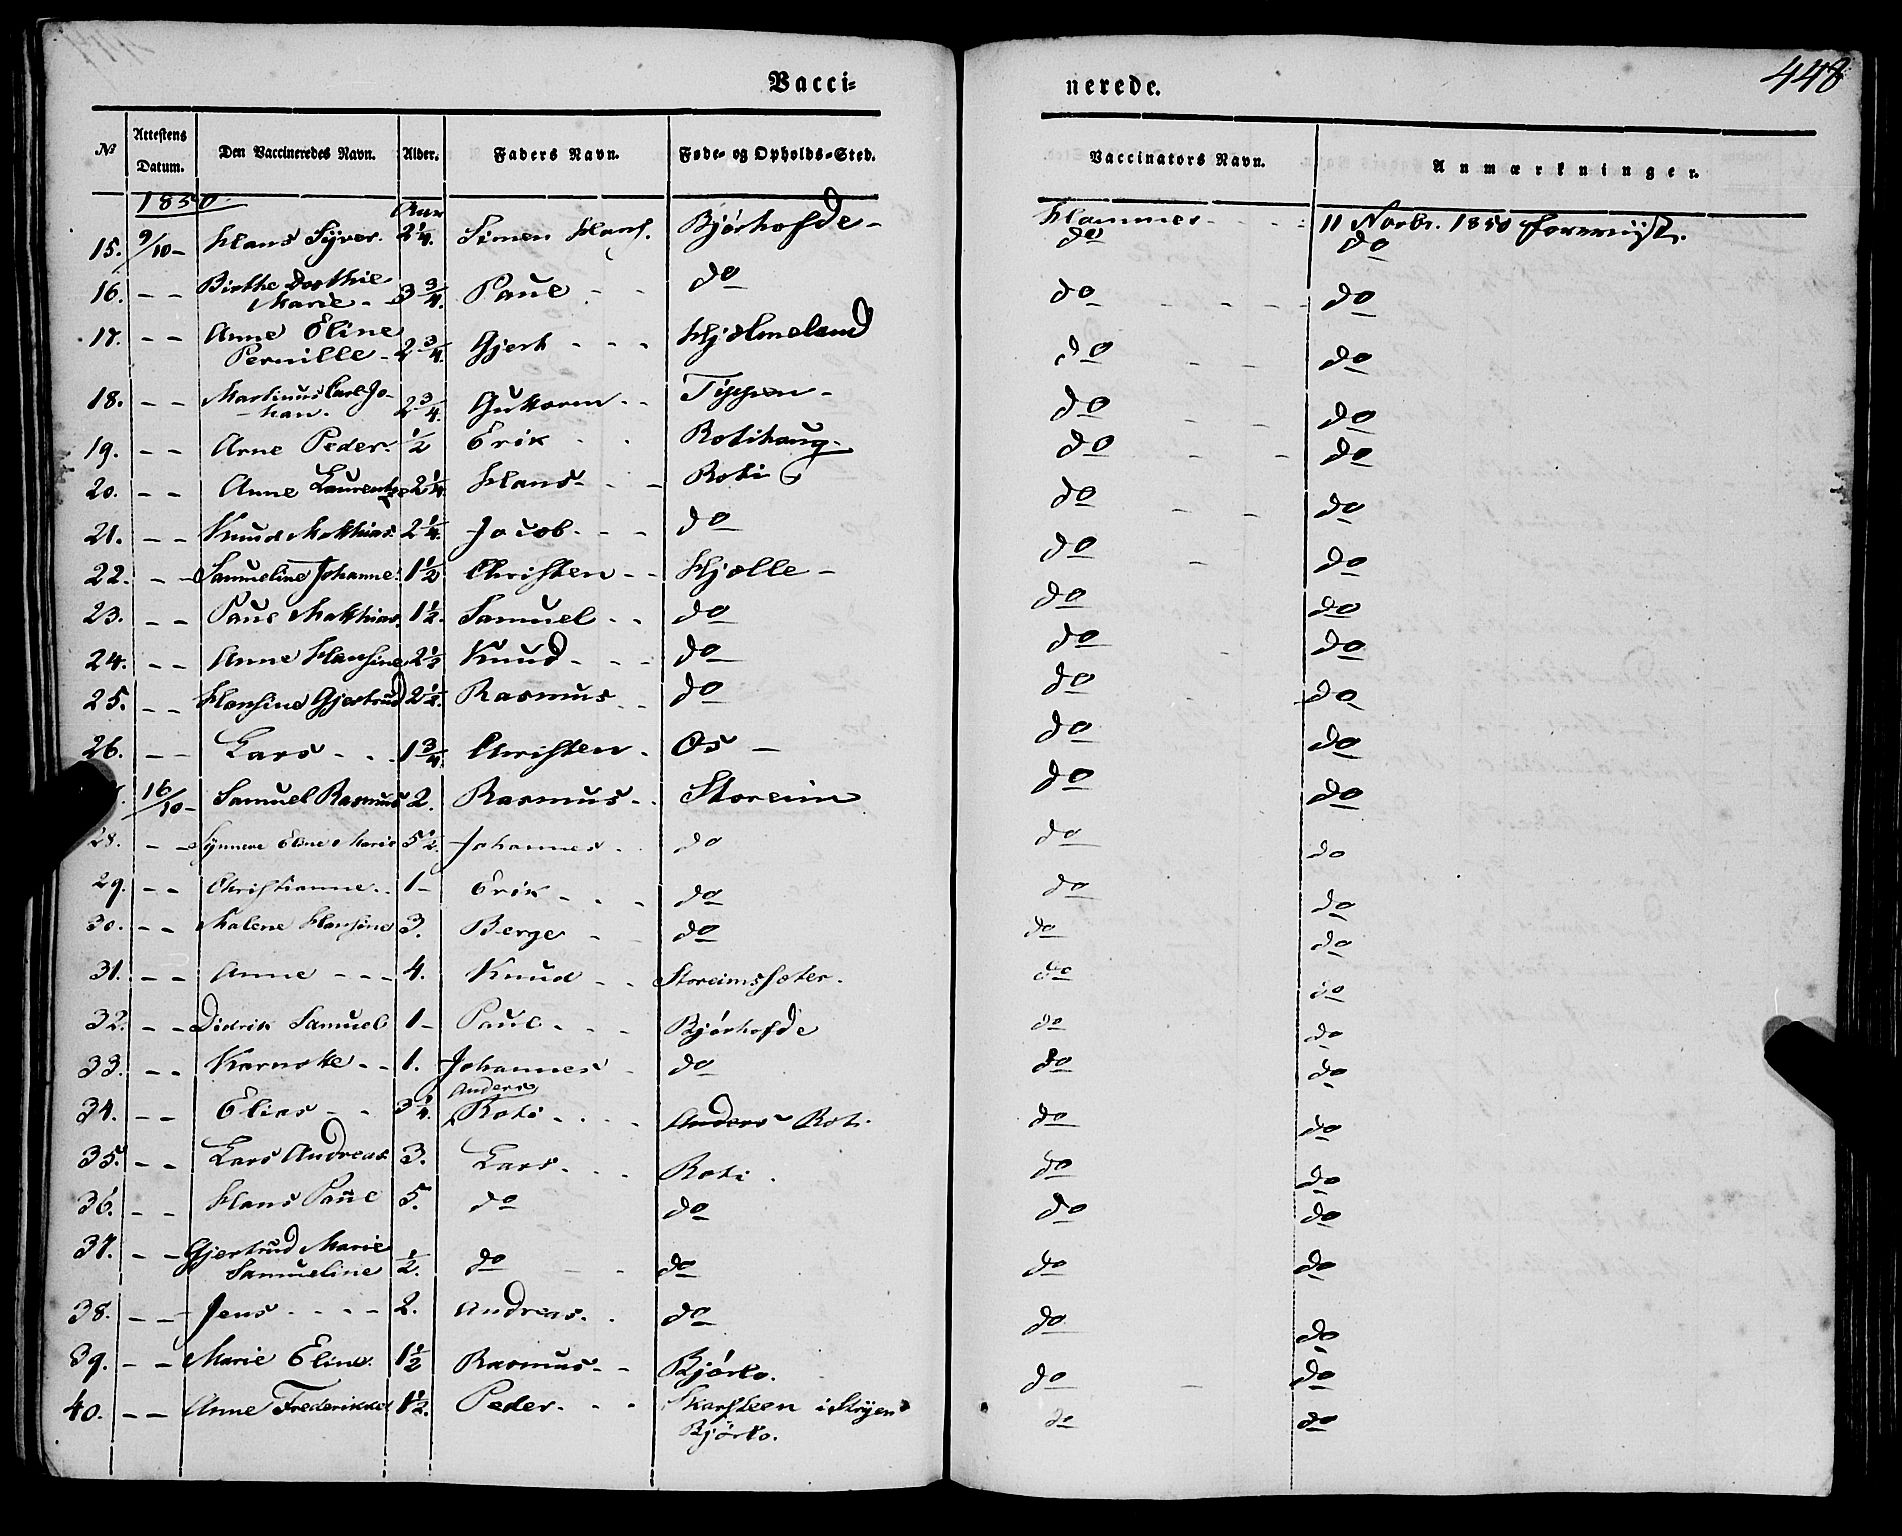 448
Vacci-
nerede.
No Attestens Datum. Den Vaccineredes Navn. Alder. Faders Navn. Føde- og Opholds-Sted. Vaccinators Navn. Anmærkninger.
1850. Aar
15. 9/10 - Hans Syver. 2 1/4. Simen Hans. Bjørhofde - Hammer - - - 11 Novbr. 1850 foreviist.
do do
16. - - Birthe Dorthie Marie - - 3 3/4. Paul - - do do - - - - do
17. - - Anne Eline Pernille - 2 3/4. Gjert - - - Hjelmeland do - - do
18. - - Martinus Carl Jo-
han. 2 3/4. Guttorm - - Tippen - do - - do
19. - - Arne Peder. 1/2 Erik - - Rotihaug. do - - do
20. - - Anne Laurentze 2 1/4 Hans - - - Roti do - - do
21. - - Knud Matthias 2 1/4. Jacob - - - do do - do
22. - - Samueline Johanne. 1 1/2 Christen - - Hjelle - do do
23. - - Paul Matthias. 1 1/2. Samuel - - do do - do
24. - - Anne Hansine 2 1/2 Knud - - - do do do
25. - - Hansine Gjertrud 2 1/2. Rasmus - - do do do
26. - - Lars - - - 1 3/4. Christen - Os - do do
16/10 - Samuel Rasmus 2. Rasmus - - Storeim do
28. - - Synneve Eline Marie 5 1/2. Johannes - - do do do
29. - - Christianne - - 1 - Erik - - - do do do
30. - - Malene Hansine 3. Berge - - do do do
31. - - Anne - - - 4. Knud - - Storeimsseter. do do
32. - - Didrik Samuel 1 - Paul - - - Bjørhofde do do
33. - - Karnotte - - 1. Johannes - do do do
Anders
34. - - Elias - - 3 1/4. Roti - - - - Anders Roti. do do
35. - - Lars Andreas 3. Lars - - - Roti. do do
36. - - Hans Paul 5. do do do do
37. - - Gjertrud Marie
Samueline 1/2. do - - do do do
38. - - Jens - - - - 2. Andreas. - do do do
39. - - Marie Eline. 1 1/2 Rasmus - - Bjørlo. do - do
40. - - Anne Frederikke 1 1/2. Peder - - - Skarsteen i Stryen do do
Bjørlo.